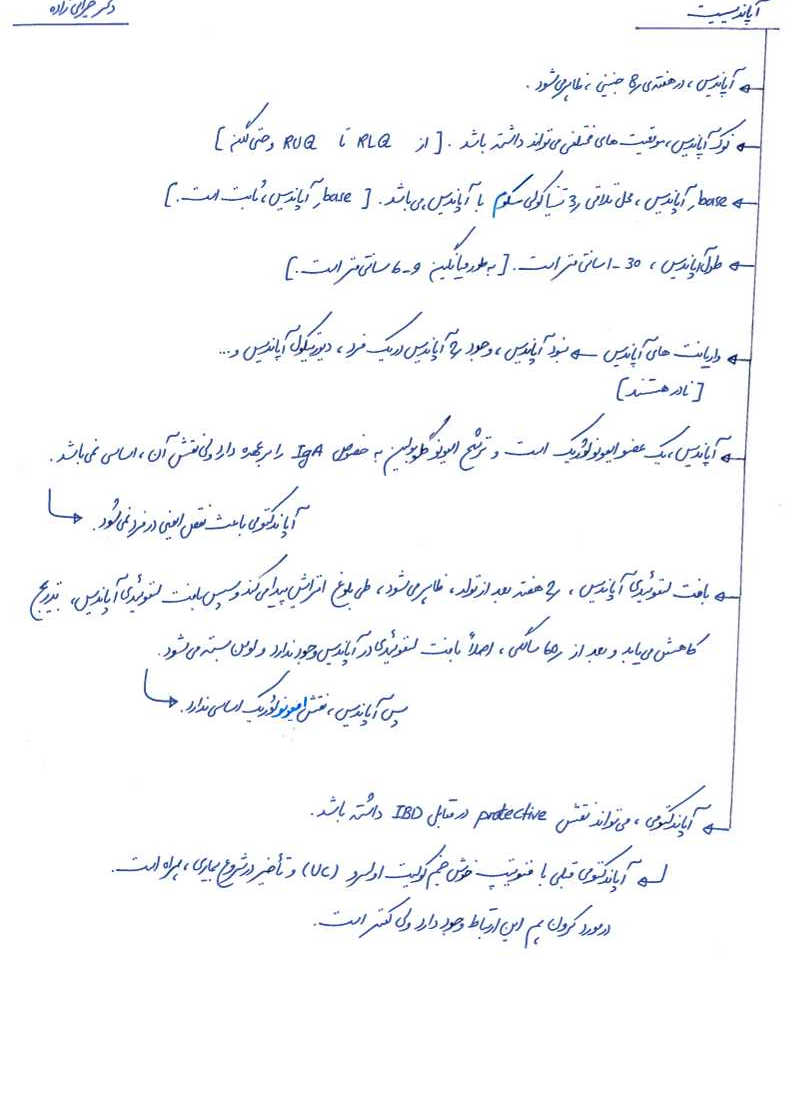 آپاندیسیت
دکتر
آپاندیس، در هفته‌ی 8 جنینی، ظاهر می‌شود.
نوک آپاندیس، موقعیت های مختلفی می‌تواند داشته باشد. [از RLQ تا RUQ و حتی لگن]
base آپاندیس، محل تلاقی 3 تنیا کولی سکوم با آپاندیس می‌باشد. [base آپاندیس، ثابت است.]
طول آپاندیس، 30-1 سانتی متر است. [به طور میانگین 9-6 سانتی متر است.]
واریانت های آپاندیس ← نبود آپاندیس، وجود 2 آپاندیس در یک فرد، دیورتیکول آپاندیس و...
[نادر هستند]
آپاندیس، یک عضو ایمونولوژیک است و ترشح ایمونوگلوبولین به خصوص IgA را بر عهده دارد ولی نقش آن، اساسی نمی‌باشد.
آپاندکتومی باعث نقص ایمنی در فرد نمی‌شود.
بافت لنفوئیدی آپاندیس، 2 هفته بعد از تولد، ظاهر می‌شود، طی بلوغ افزایش پیدا می‌کند و سپس بافت لنفوئیدی آپاندیس، بتدریج
کاهش می‌یابد و بعد از سالگی، اصلاً بافت لنفوئیدی در آپاندیس وجود ندارد و لومن بسته می‌شود.
پس آپاندیس، نقش ایمونولوژیک اساسی ندارد.
آپاندکتومی، می‌تواند نقش protective در مقابل IBD داشته باشد.
آپاندکتومی قبلی با فنوتیپ خوش خیم کولیت اولسرو (UC) و تأخیر در شروع بیماری، همراه است.
در مورد کرون هم این ارتباط وجود دارد ولی کمتر است.